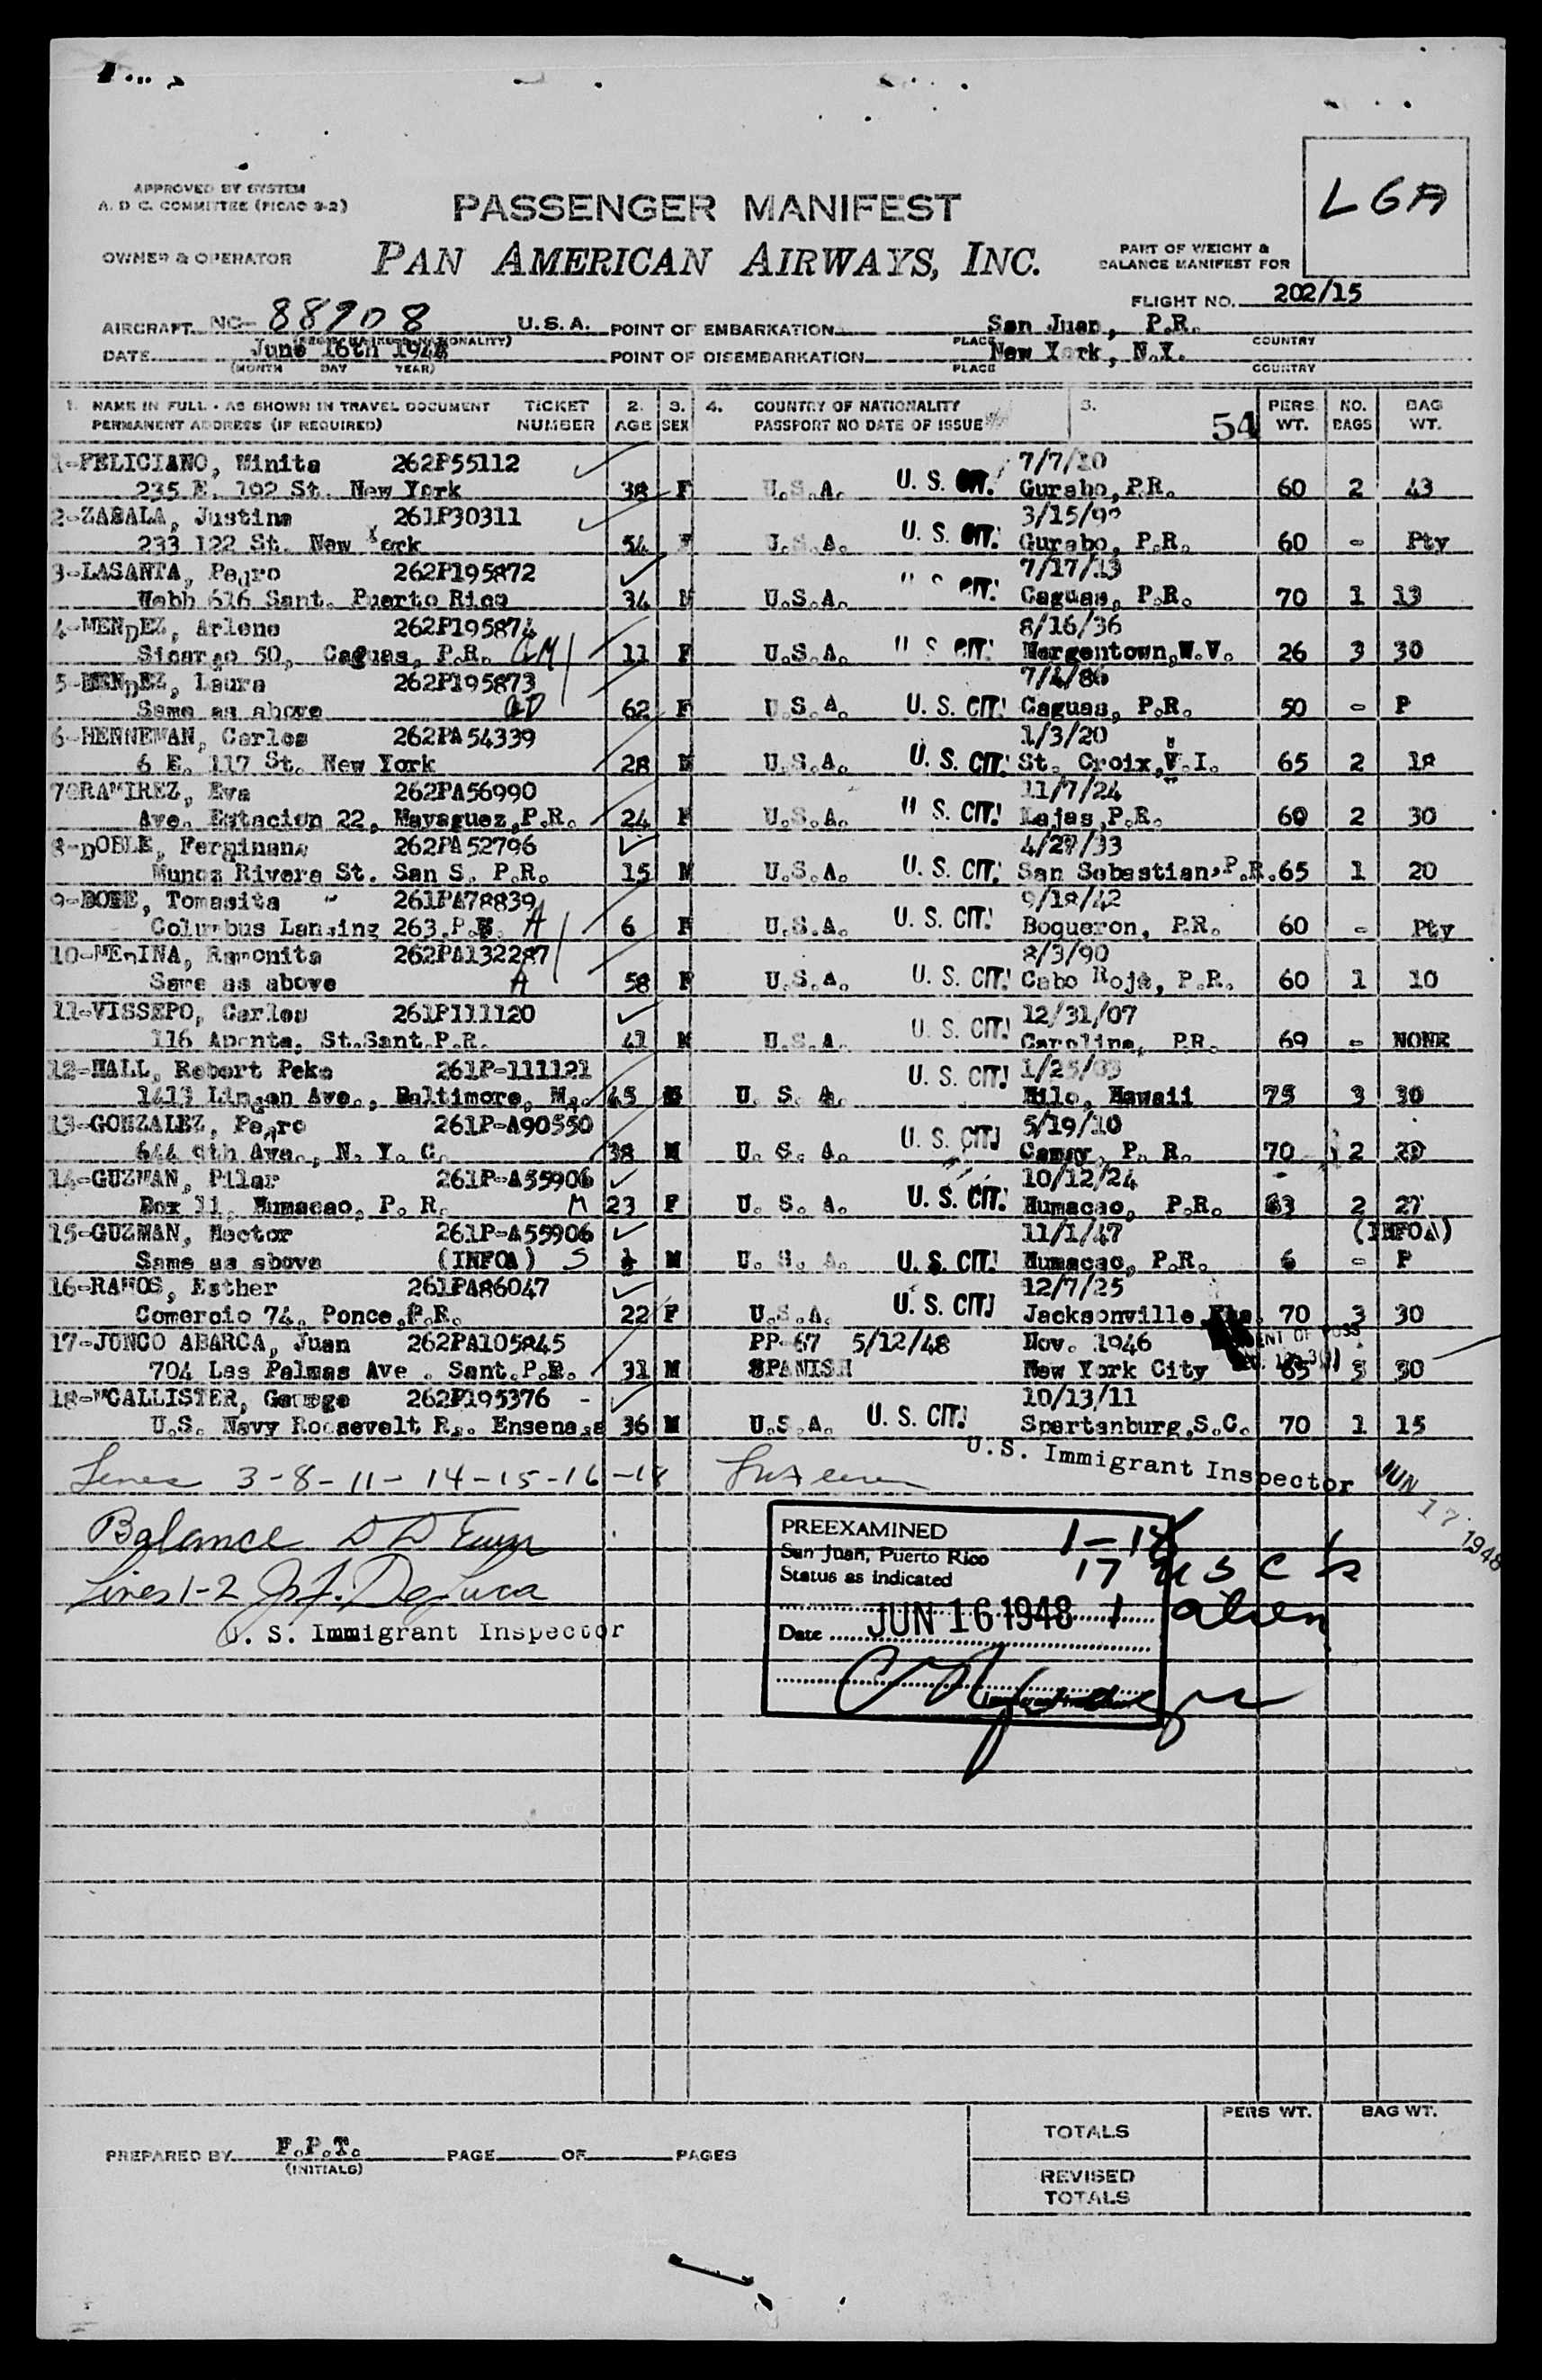 APPROVED BY SYSTEM
A. D C. COMMITTEE (PICAO 3-2)
LGA
PASSENGER MANIFEST
OWNER & OPERATOR
PAN AMERICAN AIRWAYS, INC.
PART OF WEIGHT &
BALANCE MANIFEST FOR
FLIGHT NO. 202/15
AIRCRAFT NC- 88908 U.S.A. POINT OF EMBARKATION San Juan, P.R.
PLACE COUNTRY
DATE June 16th 1948 POINT OF DISEMBARKATION New York, N.Y.
(MONTH DAY YEAR) PLACE COUNTRY
1. NAME IN FULL - AS SHOWN IN TRAVEL DOCUMENT TICKET 2. 3. 4. COUNTRY OF NATIONALITY 5. PERS NO. BAG
PERMANENT ADDRESS (IF REQUIRED) NUMBER AGE SEX PASSPORT NO DATE OF ISSUE 54 WT. BAGS WT.
1-FELICIANO, Minita 262P55112 7/7/10
235 E. 192 St. New York 38 F U.S.A. U. S. CIT. Gurabo, P.R. 60 2 43
2-ZABALA, Justina 261P30311 3/15/9
233 122 St. New York 54 F U.S.A. U. S. CIT. Gurabo, P.R. 60 - Pty
3-LASANTA, Pedro 262P195872 7/17/13
Webb 616 Sant. Puerto Rico 34 M U.S.A. U S CIT. Caguas, P.R. 70 1 13
4-MENDEZ, Arlene 262P195874 8/16/36
Sicardo 50, Caguas, P.R. GM 11 F U.S.A. U S CIT. Morgentown, W.V. 26 3 30
5-MENDEZ, Laura 262P195873 7/4/86
Same as above GD 62 F U.S.A. U. S. CIT. Caguas, P.R. 50 - P
6-HENNEMAN, Carlos 262PA54339 1/3/20
6 E. 117 St. New York 28 M U.S.A. U. S. CIT. St. Croix, V.I. 65 2 18
7-RAMIREZ, Eva 262PA56990 11/7/24
Ave. Estacion 22, Mayaguez, P.R. 24 F U.S.A. U S. CIT. Lajas, P.R. 60 2 30
8-DOBLE, Ferdinand 262PA52796 4/27/33
Munoz Rivera St. San S. P.R. 15 M U.S.A. U. S. CIT. San Sebastian, P.R. 65 1 20
9-BOBE, Tomasita 261PA78839 9/18/42
Columbus Landing 263, P.R. A 6 F U.S.A. U. S. CIT. Boqueron, P.R. 60 - Pty
10-MEDINA, Ramonita 262PA132287 8/3/90
Same as above A 58 F U.S.A. U. S. CIT. Cabo Rojo, P.R. 60 1 10
11-VISSEPO, Carlos 261P111120 12/31/07
116 Aponte, St. Sant. P.R. 41 M U.S.A. U. S. CIT. Carolina, P.R. 69 - NONE
12-HALL, Robert Peke 261P-111121 1/25/03
1413 Linden Ave., Baltimore, Md. 45 M U. S. A. U. S. CIT. Hilo, Hawaii 75 3 30
13-GONZALEZ, Pedro 261P-A90550 5/19/10
644 9th Ave., N. Y. C. 38 M U. S. A. U. S. CIT. Camuy, P. R. 70 2 20
14-GUZMAN, Pilar 261P-A55906 10/12/24
Box 11, Humacao, P. R. M 23 F U. S. A. U. S. CIT. Humacao, P.R. 63 2 27
15-GUZMAN, Hector 261P-A55906 11/1/47 (INFOA)
Same as above (INFOA) S M U. S. A. U. S. CIT. Humacao, P.R. 6 - P
16-RAMOS, Esther 261PA86047 12/7/25
Comercio 74, Ponce, P.R. 22 F U.S.A. U. S. CIT. Jacksonville, Fla. 70 3 30
17-JUNCO ABARCA, Juan 262PA105845 PP-67 5/12/48 Nov. 1946
704 Las Palmas Ave. Sant. P.R. 31 M SPANISH New York City 65 3 30
18-MCALLISTER, George 262P195376 - 10/13/11
U.S. Navy Roosevelt Rd. Ensenada 36 M U.S.A. U. S. CIT. Spartanburg, S.C. 70 1 15
Lines 3-8-11-14-15-16-18
U.S. Immigrant Inspector JUN 17 1948
Balance
Lines 1-2 Jos. F. DeLuca
U. S. Immigrant Inspector
PREEXAMINED
San Juan, Puerto Rico
Status as indicated
Date JUN 16 1948
1-18
17 USC's
1 alien
PREPARED BY F.P.T. PAGE OF PAGES
(INITIALS)
PERS WT. BAG WT.
TOTALS
REVISED
TOTALS